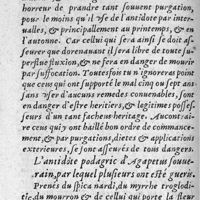 horreur de prandre tant souuent purgation,
pour le moins qu'il vse de l'antidote par inter-
ualles, & principallement au printemps, & en
l'autonne. Car cellui qui sera ainsi se doit as-
seurer que dorenauant il sera libre de toute su-
perflue fluxion, & ne sera en danger de mourir
par suffocation. Toutesfois tu n'ignoreras point
que ceus qui ont supporté le mal cinq ou sept ans
sans vser d'aucuns remedes conuenables, sont
en danger d'estre heritiers, & legitimes posses-
seurs d'un tant facheus heritage. Au contrai-
re ceus qui ont baillé bon ordre de commance-
ment, & par purgations, dietes & applications
exterieures, se sont asseurés de tous dangers.
L'antidote podagric d'Agapetus souue-
rain, par lequel plusieurs ont esté gueris.
Prenés du spica nardi, du myrrhe troglodi-
tic, du mourron & de cellui qui porte la fleur